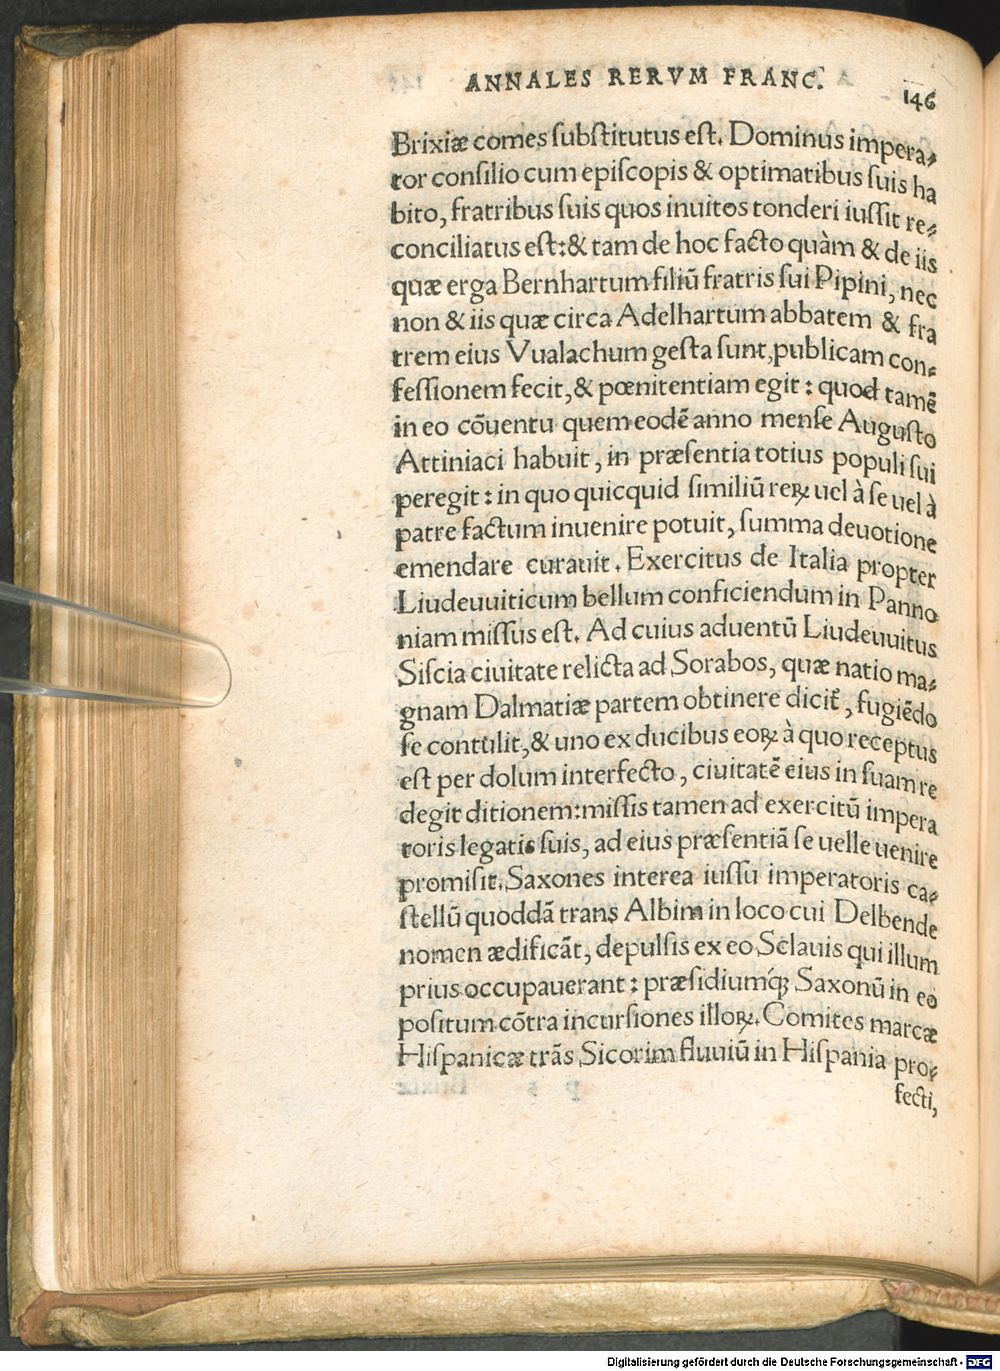 ANNALES RERVM FRANC.
146
Brixiæ comes ſubſtitutus eſt. Dominus impera⸗
tor conſilio cum epiſcopis & optimatibus ſuis ha
bito, fratribus ſuis quos inuitos tonderi iuſſit re⸗
conciliatus eſt: & tam de hoc facto quàm & de iis
quæ erga Bernhartum filiũ fratris ſui Pipini, nec
non & iis quæ circa Adelhartum abbatem & fra
trem eius Vualachum geſta ſunt, publicam con⸗
feſſionem fecit, & pœnitentiam egit: quod tamẽ
in eo cõuentu quem eodẽ anno menſe Auguſto
Attiniaci habuit, in præſentia totius populi ſui
peregit: in quo quicquid ſimiliũ reꝝ uel à ſe uel à
patre factum inuenire potuit, ſumma deuotione
emendare curauit. Exercitus de Italia propter
Liudeuuiticum bellum conficiendum in Panno
niam miſſus eſt. Ad cuius aduentũ Liudeuuitus
Siſcia ciuitate relicta ad Sorabos, quæ natio ma⸗
gnam Dalmatiæ partem obtinere dicit̃, fugiẽdo
ſe contulit, & uno ex ducibus eoꝝ à quo receptus
eſt per dolum interfecto, ciuitatẽ eius in ſuam re
degit ditionem: miſſis tamen ad exercitũ impera
toris legatis ſuis, ad eius præſentiã ſe uelle uenire
promiſit. Saxones interea iuſſu imperatoris ca⸗
ſtellũ quoddã trans Albim in loco cui Delbende
nomen ædificãt, depulſis ex eo Sclauis qui illum
prius occupauerant: præſidiumq́; Saxonũ in eo
poſitum cõtra incurſiones illoꝝ. Comites marcæ
Hiſpanicæ trãs Sicorim fluuiũ in Hiſpania pro⸗
fecti,
Digitalisierung gefördert durch die Deutsche Forschungsgemeinschaft - DFG